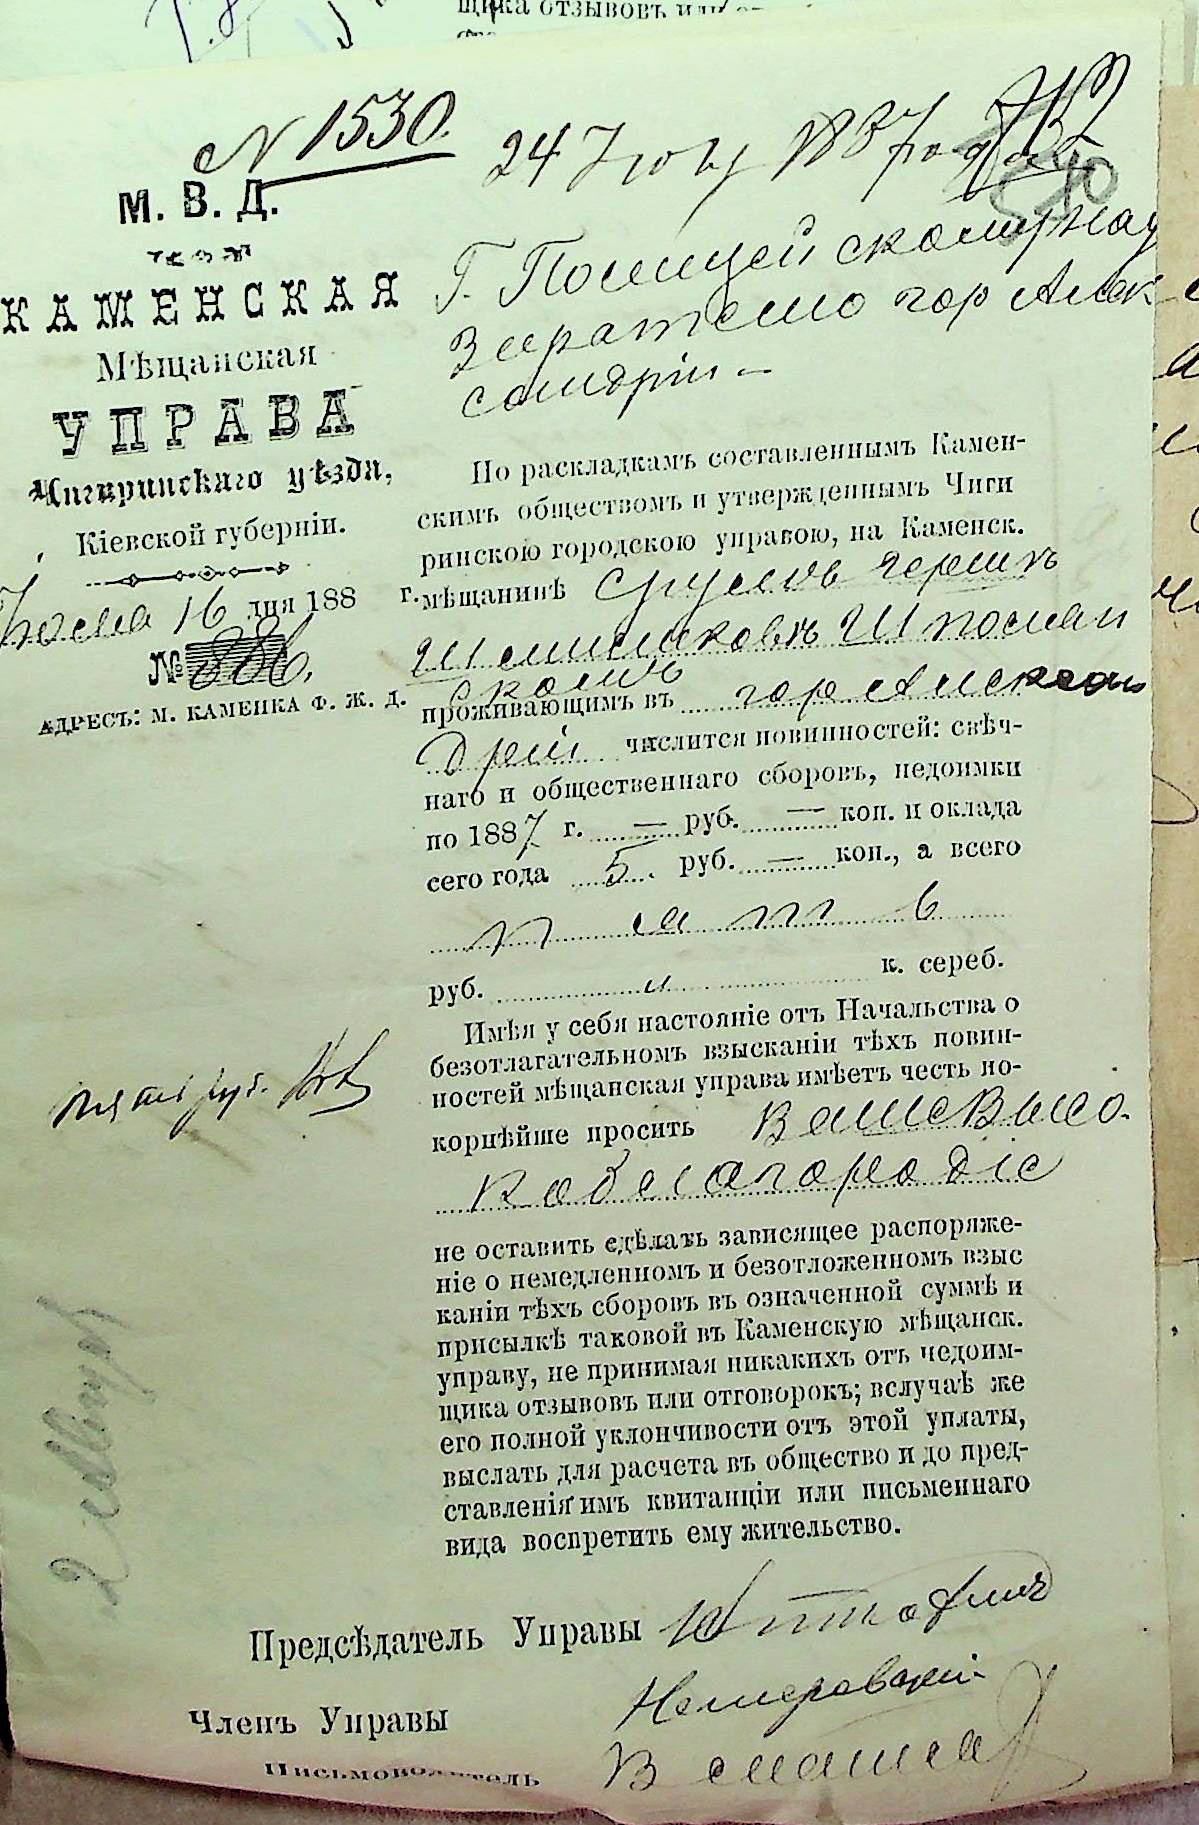 щика отзывовъ или
№ 1530.
24 Іюня 1887 года
М. В. Д.
КАМЕНСКАЯ
Мѣщанская
УПРАВА
Чигиринскаго уѣзда,
Кіевской губерніи.
16 дня 188 г.
№
АДРЕСЪ: М. КАМЕНКА Ф. Ж. Д.
Г. Полицейскому Над
зирателю гор Алек
сандріи —
По раскладкамъ составленнымъ Камен-
скимъ обществомъ и утвержденнымъ Чиги
ринскою городскою управою, на Каменск.
мѣщанинѣ Срулѣ
Шполян
скомъ
проживающимъ въ гор Алексан
дріи числится повинностей: свѣч-
наго и общественнаго сборовъ, недоимки
по 1887 г. — руб. — коп. и оклада
сего года 5 руб. — коп., а всего
пять
руб. к. сереб.
Имѣя у себя настояніе отъ Начальства о
безотлагательномъ взысканіи тѣхъ повин-
ностей мѣщанская управа имѣетъ честь по-
корнѣйше просить Ваше Высо-
коблагородіе
не оставить сдѣлать зависящее распоряже-
ніе о немедленномъ и безотложенномъ взыс
каніи тѣхъ сборовъ въ означенной суммѣ и
присылкѣ таковой въ Каменскую мѣщанск.
управу, не принимая никакихъ отъ недоим-
щика отзывовъ или отговорокъ; вслучаѣ же
его полной уклончивости отъ этой уплаты,
выслать для расчета въ общество и до пред-
ставленія имъ квитанціи или письменнаго
вида воспретить ему жительство.
пять руб.
Предсѣдатель Управы
Членъ Управы
Письмоводитель